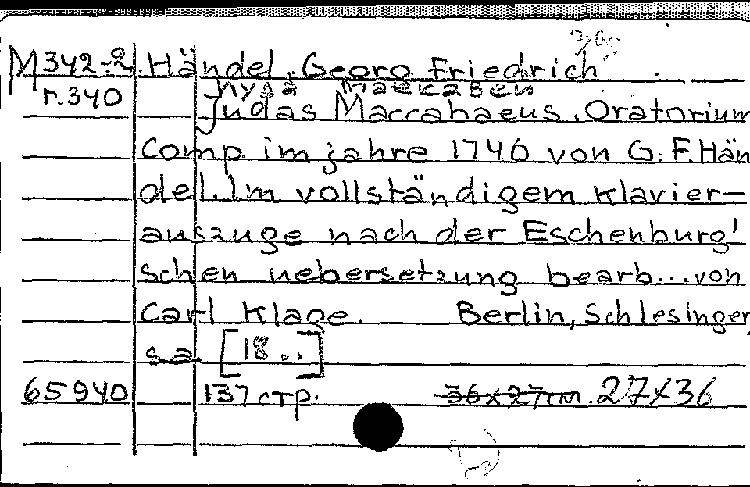 M342-2 Händel, Georg Friedrich
г.340 Иуда Маккавей
Judas Maccabaeus. Oratorium
Comp. im jahre 1746 von G. F. Hän
del. Im vollständigem Klavier-
auszuge nach der Eschenburg'
schen uebersetzung bearb... von
Carl Klage. Berlin, Schlesinger,
s.a. [18..]
65940 137 стр. 36x27cm. 27x36